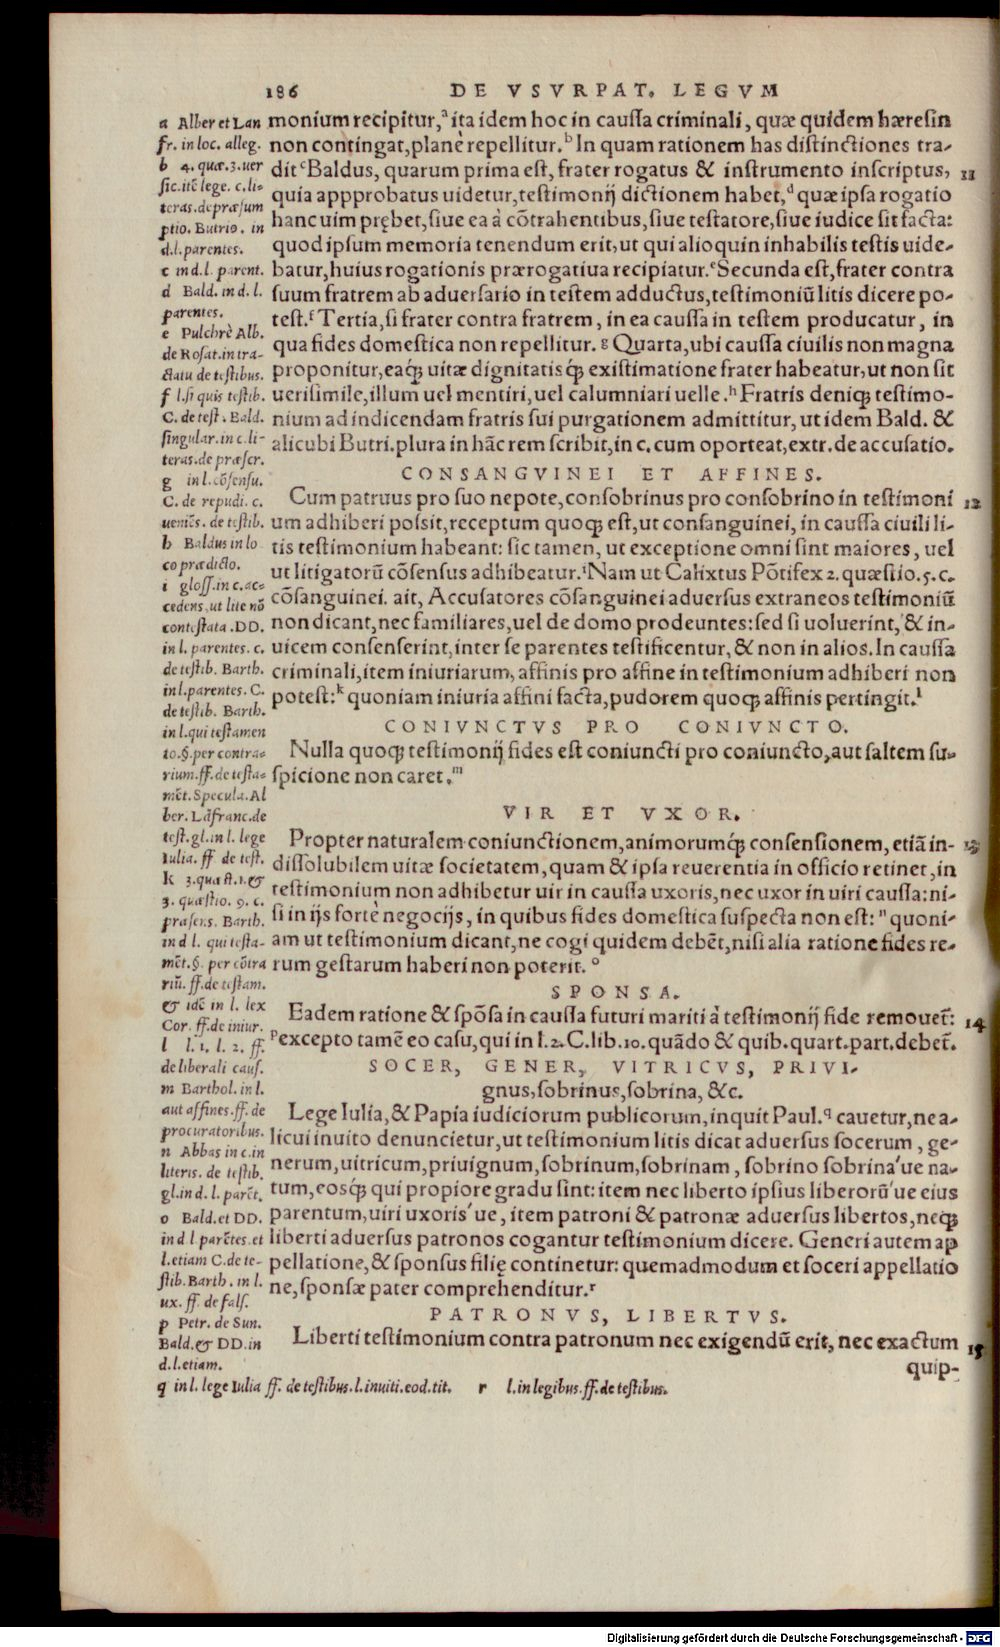 186 DE VSVRPAT. LEGVM
monium recipitur,ᵃ ita idem hoc in caussa criminali, quæ quidem hæresin
non contingat, planè repellitur.ᵇ In quam rationem has distinctiones tra-
dit ᶜ Baldus, quarum prima est, frater rogatus & instrumento inscriptus, 11
quia appprobatus uidetur, testimonij dictionem habet,ᵈ quæ ipsa rogatio
hanc uim prębet, siue ea à cōtrahentibus, siue testatore, siue iudice sit facta:
quod ipsum memoria tenendum erit, ut qui alioquin inhabilis testis uide-
batur, huius rogationis prærogatiua recipiatur.ᵉ Secunda est, frater contra
suum fratrem ab aduersario in testem adductus, testimoniū litis dicere po-
test.ᶠ Tertia, si frater contra fratrem, in ea caussa in testem producatur, in
qua fides domestica non repellitur.ᵍ Quarta, ubi caussa ciuilis non magna
proponitur, eaq́; uitæ dignitatisq́; existimatione frater habeatur, ut non sit
uerisimile, illum uel mentiri, uel calumniari uelle.ʰ Fratris deniq; testimo-
nium ad indicendam fratris sui purgationem admittitur, ut idem Bald. &
alicubi Butri. plura in hāc rem scribit, in c. cum oporteat, extr. de accusatio.
CONSANGVINEI ET AFFINES.
Cum patruus pro suo nepote, consobrinus pro consobrino in testimoni 12
um adhiberi possit, receptum quoq; est, ut consanguinei, in caussa ciuili li-
tis testimonium habeant: sic tamen, ut exceptione omni sint maiores, uel
ut litigatorū cōsensus adhibeatur.ⁱ Nam ut Calixtus Pōtifex 2. quæstio. 5. c.
cōsanguinei. ait, Accusatores cōsanguinei aduersus extraneos testimoniū
non dicant, nec familiares, uel de domo prodeuntes: sed si uoluerint, & in-
uicem consenserint, inter se parentes testificentur, & non in alios. In caussa
criminali, item iniuriarum, affinis pro affine in testimonium adhiberi non
potest:ᵏ quoniam iniuria affini facta, pudorem quoq; affinis pertingit.ˡ
CONIVNCTVS PRO CONIVNCTO.
Nulla quoq; testimonij fides est coniuncti pro coniuncto, aut saltem su-
spicione non caret.ᵐ
VIR ET VXOR.
Propter naturalem coniunctionem, animorumq́; consensionem, etiā in- 13
dissolubilem uitæ societatem, quam & ipsa reuerentia in officio retinet, in
testimonium non adhibetur uir in caussa uxoris, nec uxor in uiri caussa: ni-
si in ijs fortè negocijs, in quibus fides domestica suspecta non est:ⁿ quoni-
am ut testimonium dicant, ne cogi quidem debēt, nisi alia ratione fides re-
rum gestarum haberi non poterit.ᵒ
SPONSA.
Eadem ratione & spōsa in caussa futuri mariti à testimonij fide remouet̃: 14
ᵖ excepto tamē eo casu, qui in l. 2. C. lib. 10. quādo & quib. quart. part. debet̃.
SOCER, GENER, VITRICVS, PRIVI-
gnus, sobrinus, sobrina, &c.
Lege Iulia, & Papia iudiciorum publicorum, inquit Paul.ᑫ cauetur, ne a-
licui inuito denuncietur, ut testimonium litis dicat aduersus socerum, ge-
nerum, uitricum, priuignum, sobrinum, sobrinam, sobrino sobrina'ue na-
tum, eosq́; qui propiore gradu sint: item nec liberto ipsius liberorū'ue eius
parentum, uiri uxoris'ue, item patroni & patronæ aduersus libertos, neq;
liberti aduersus patronos cogantur testimonium dicere. Generi autem ap
pellatione, & sponsus filię continetur: quemadmodum et soceri appellatio
ne, sponsæ pater comprehenditur.ʳ
PATRONVS, LIBERTVS.
Liberti testimonium contra patronum nec exigendū erit, nec exactum 15
quip-
a Alber et Lan
fr. in loc. alleg.
b 4. quæ. 3. uer
sic. itē lege. c. li-
teras. de præsum
ptio. Butrio. in
d. l. parentes.
c in d. l. parent.
d Bald. in d. l.
parentes.
e Pulchrè Alb.
de Rosat. in tra-
ctatu de testibus.
f l. si quis testib.
C. de test. Bald.
singular. in c. li-
teras. de præscr.
g in l. cōsensu.
C. de repudi. c.
ueniēs. de testib.
h Baldus in lo
co prædicto.
i gloss. in c. ac-
cedens, ut lite nō
contestata. DD.
in l. parentes. c.
de testib. Barth.
in l. parentes. C.
de testib. Barth.
in l. qui testamen
to. §. per contra-
rium. ff. de testa-
mēt. Specula. Al
ber. Lāfranc. de
test. gl. in l. lege
Iulia. ff de test.
k 3. quæst. 1. &
3. quæstio. 9. c.
præsens. Barth.
in d l. qui testa-
mēt. §. per cōtra
riū. ff. de testam.
& idē in l. lex
Cor. ff. de iniur.
l l. 1. l. 2. ff.
de liberali caus.
m Barthol. in l.
aut affines. ff. de
procuratoribus.
n Abbas in c. in
literis. de testib.
gl. in d. l. parēt.
o Bald. et DD.
in d l parētes. et
l. etiam C. de te-
stib. Barth. in l.
ux. ff. de fals.
p Petr. de Sun.
Bald. & DD. in
d. l. etiam.
q in l. lege Iulia ff. de testibus. l. inuiti. eod. tit. r l. in legibus. ff. de testibus.
Digitalisierung gefördert durch die Deutsche Forschungsgemeinschaft - DFG